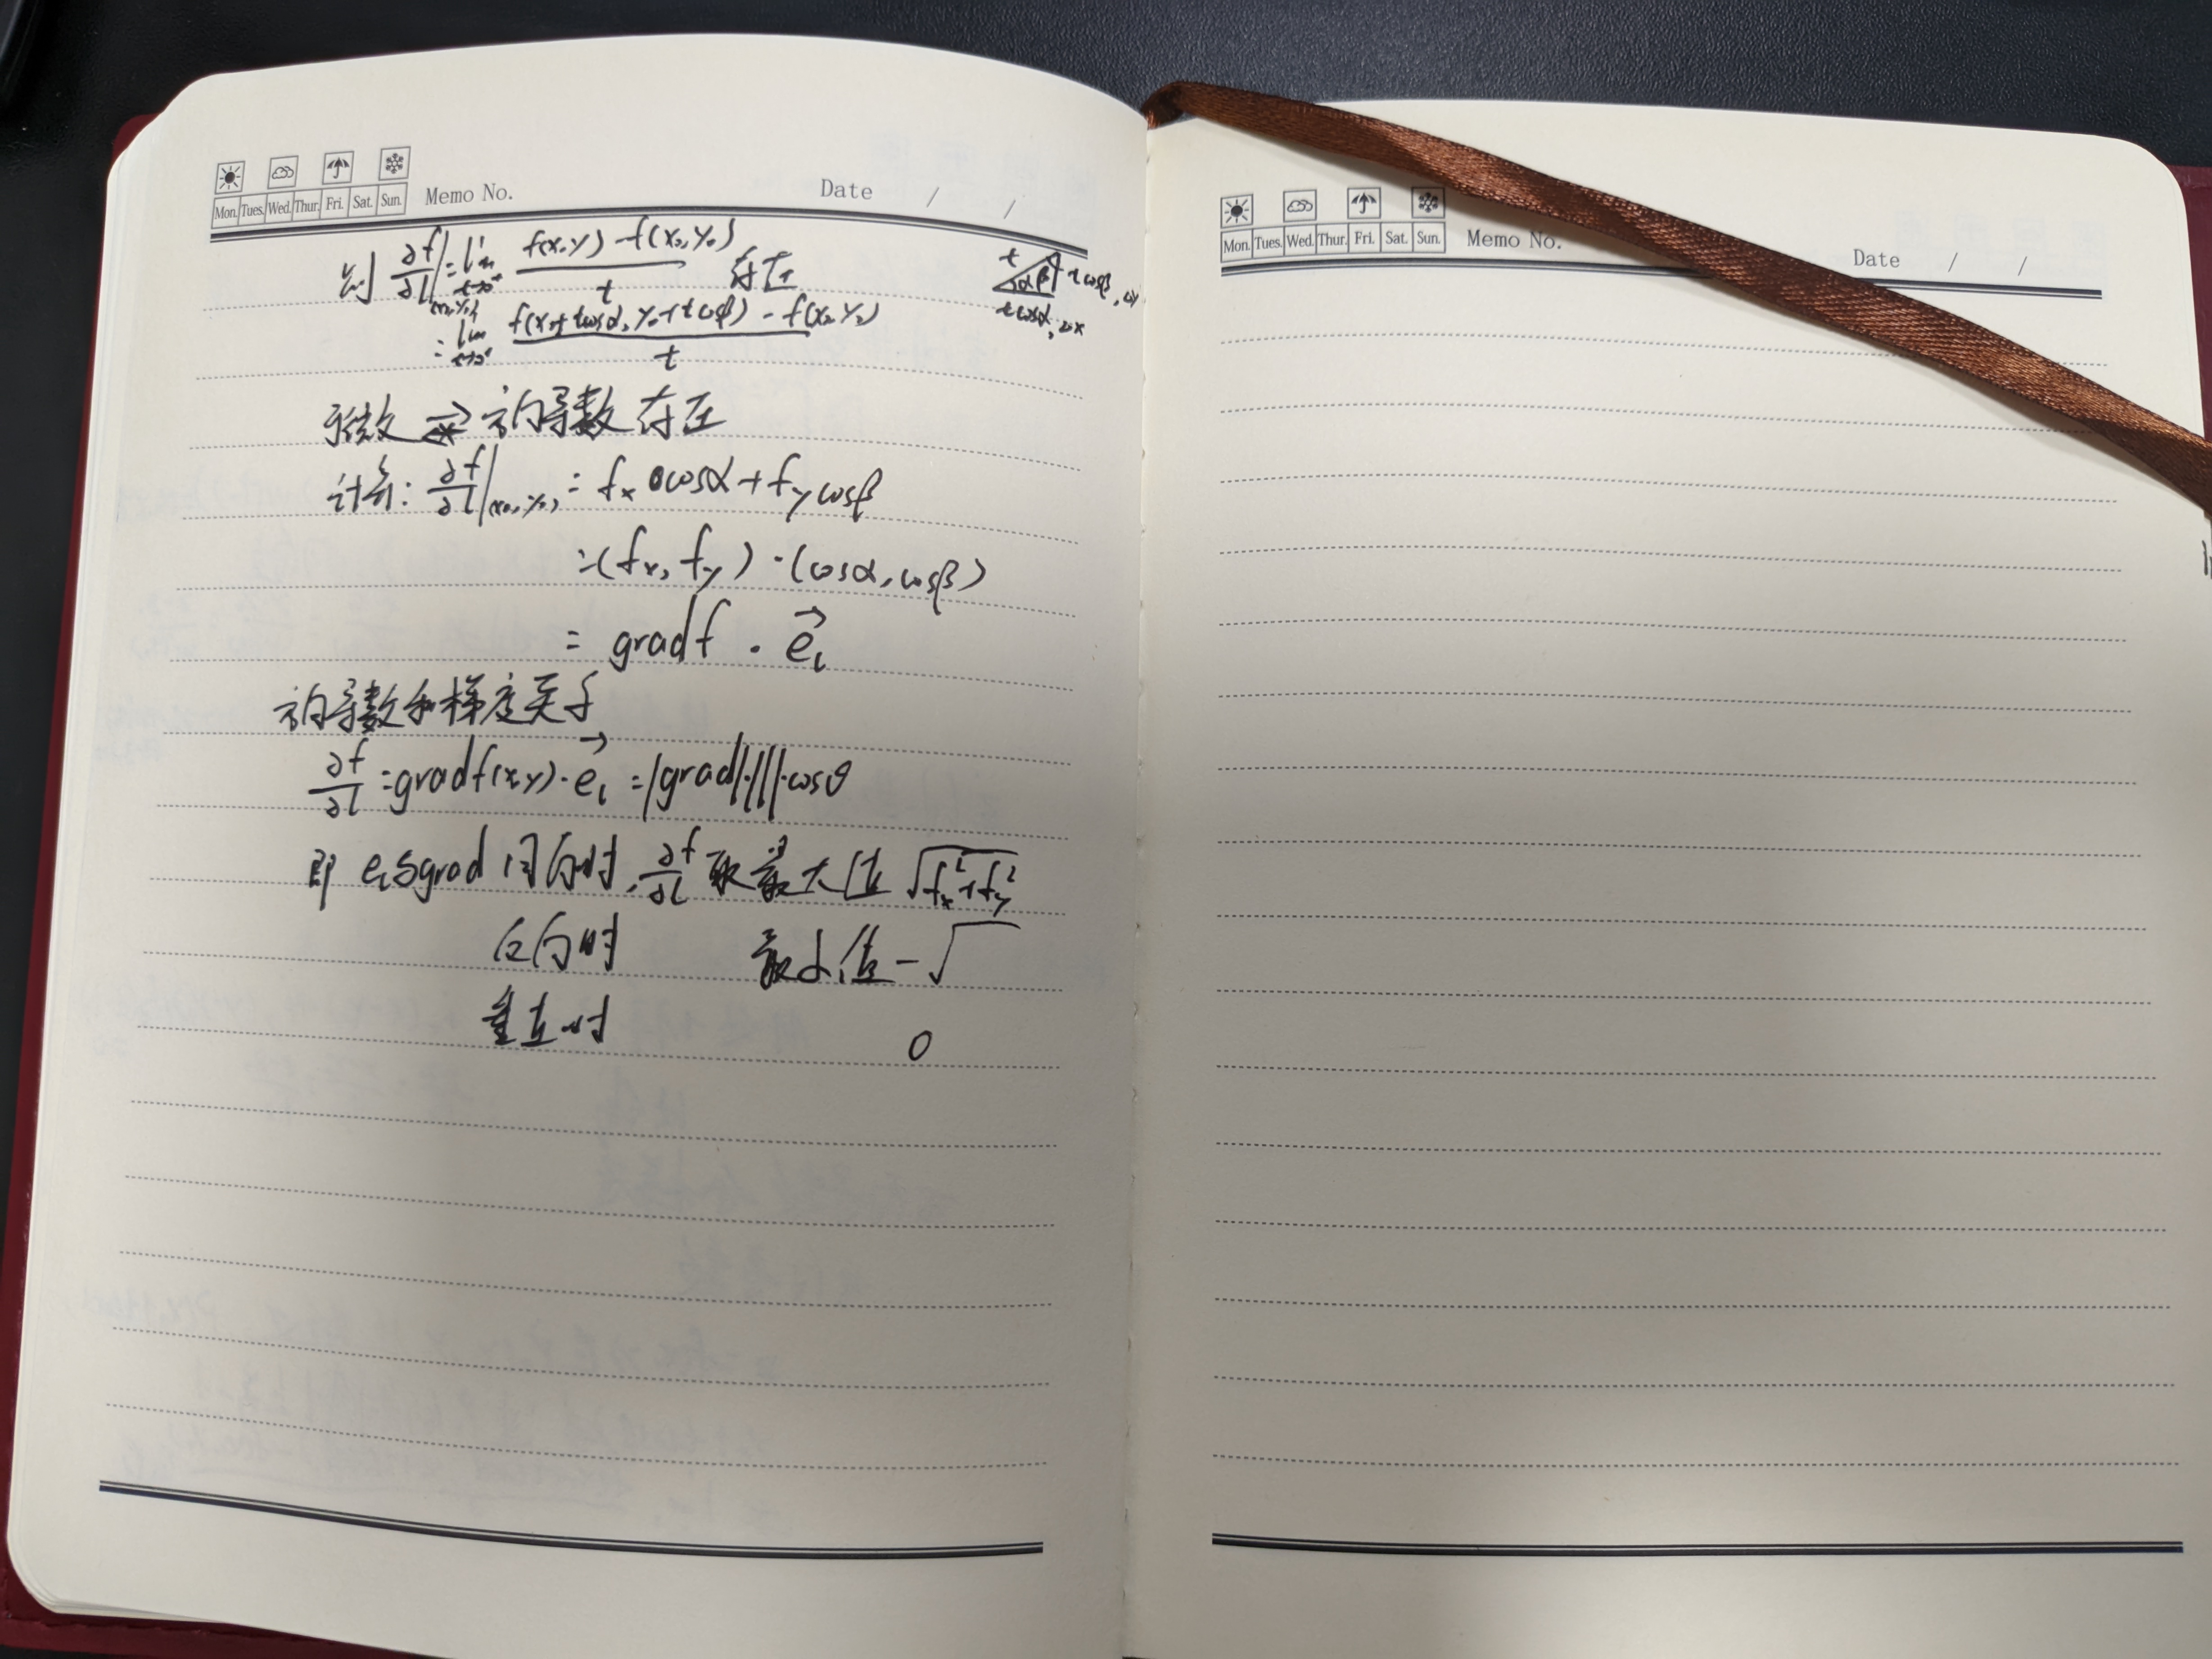 Mon. Tues. Wed. Thur. Fri. Sat. Sun. Memo No. Date / /
则 ∂f/∂l|(x₀,y₀) = lim t→0⁺ (f(x,y) - f(x₀,y₀))/t 存在
t α β tcosβ, Δy
tcosα, Δx
= lim t→0⁺ (f(x₀+tcosα, y₀+tcosβ) - f(x₀,y₀))/t
可微 方向导数存在
计算: ∂f/∂l|(x₀,y₀) = fx cosα + fy cosβ
= (fx, fy) · (cosα, cosβ)
= grad f · e⃗l
方向导数和梯度关系
∂f/∂l = grad f(x,y) · e⃗l = |grad|·|1|·cosθ
即 el与grad 同向时, ∂f/∂l 取最大值 √(fx²+fy²)
反向时 最小值 -√
垂直时 0
Mon. Tues. Wed. Thur. Fri. Sat. Sun. Memo No. Date / /